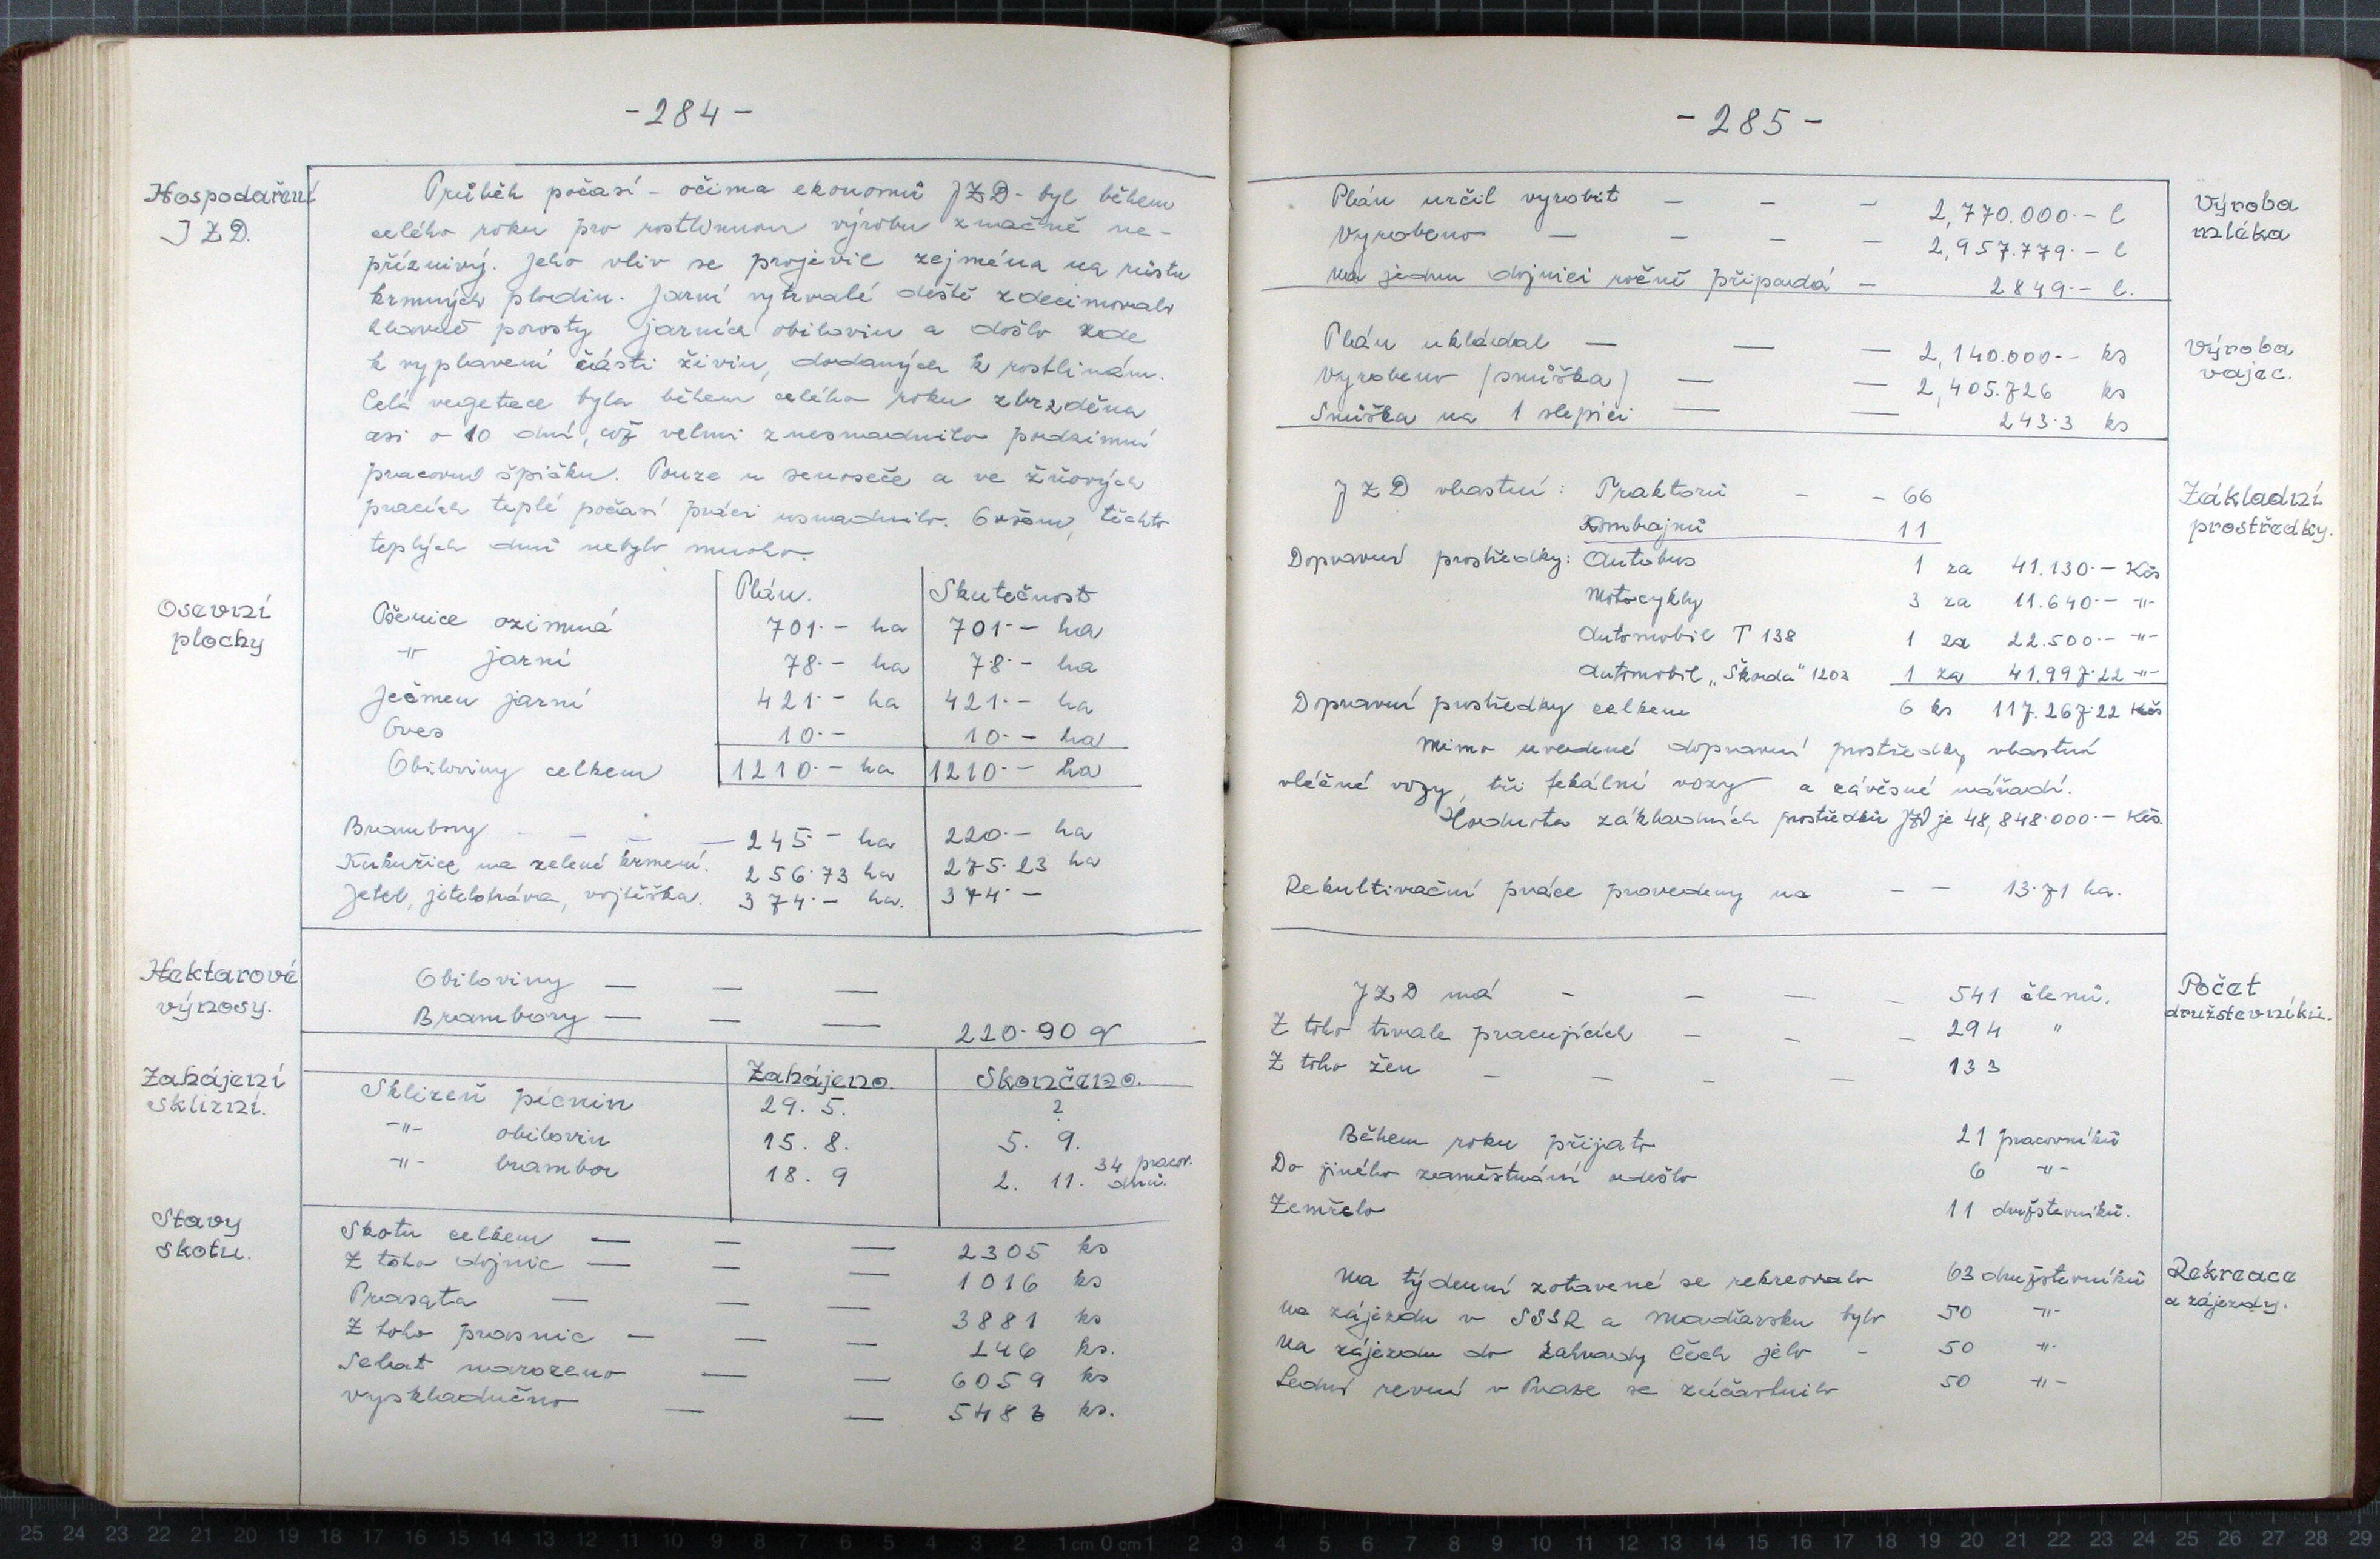 -284-
Hospodaření
JZD.
Průběh počasí - očima ekonomů JZD - byl během
celého roku pro rostlinnou výrobu značně ne-
příznivý. Jeho vliv se projevil zejména na růstu
krmných plodin. Jarní vytrvalé deště zdecimovaly
hlavně porosty jarních obilovin a došlo zde
k vyplavení části živin, dodaných k rostlinám.
Celá vegetace byla během celého roku zbrzděna
asi o 10 dní, což velmi znesnadnilo podzimní
pracovní špičku. Pouze u senoseče a ve žňových
pracích teplé počasí práci usnadnilo. Ovšem, těchto
teplých dnů nebylo mnoho.
Osevní
plochy
Plán. Skutečnost
Pšenice ozimná 701·- ha 701·- ha
-"- jarní 78·- ha 78·- ha
Ječmen jarní 421·- ha 421·- ha
Oves 10·- 10·- ha
Obiloviny celkem 1210·- ha 1210·- ha
Brambory - - - 245·- ha 220·- ha
Kukuřice na zelené krmení. 256·73 ha 275·23 ha
Jetel, jetelotráva, vojtěška. 374·- ha. 374·-
Hektarové
výnosy.
Obiloviny — — —
Brambory — — — 220·90 q
Zahájení
sklizní.
Zahájeno. Skončeno.
Sklizeň pícnin 29. 5. ?
-"- obilovin 15. 8. 5. 9.
-"- brambor 18. 9 2. 11. 34 pracov.
dnů.
Stavy
skotu.
Skotu celkem — — — 2305 ks
Z toho dojnic — — — 1016 ks
Prasata — — — 3881 ks
Z toho prasnic — — — 246 ks.
Selat narozeno — — 6059 ks
Vyskladněno — — 5483 ks.
-285-
Výroba
mléka
Plán určil vyrobit - - - 2,770.000·- l
Vyrobeno — - - — 2,957.779·- l
Na jednu dojnici ročně připadá - 2849·- l.
Výroba
vajec.
Plán ukládal — — — 2,140.000·- ks
Vyrobeno (snůška) — — 2,405.726 ks
Snůška na 1 slepici — — 243·3 ks
Základní
prostředky.
JZD vlastní: Traktorů - - 66
Kombajnů 11
Dopravní prostředky: Autobus 1 za 41.130·- Kčs
Motocykly 3 za 11.640·- -"-
Automobil T 138 1 za 22.500·- -"-
Automobil „Škoda" 1203 1 za 41.997·22 -"-
Dopravní prostředky celkem 6 ks 117.267·22 Kčs
Mimo uvedené dopravní prostředky vlastní
vlečné vozy, tři fekální vozy a závěsné nářadí.
Hodnota základních prostředků JZD je 48,848·000·- Kčs.
Rekultivační práce provedeny na - - 13·71 ha.
Počet
družstevníků.
JZD má - - - - 541 členů.
Z toho trvale pracujících - - - 294 "
Z toho žen - - - - 133
Během roku přijato 21 pracovníků
Do jiného zaměstnání odešlo 6 -"-
Zemřelo 11 družstevníků.
Rekreace
a zájezdy.
Na týdenní zotavené se rekreovalo 63 družstevníků
Na zájezdu v SSSR a Maďarsku bylo 50 -"-
Na zájezdu do Zahrady Čech jelo - 50 -"-
Lední revui v Praze se zúčastnilo 50 -"-
25 24 23 22 21 20 19 18 17 16 15 14 13 12 11 10 9 8 7 6 5 4 3 2 1 cm 0 cm 1 2 3 4 5 6 7 8 9 10 11 12 13 14 15 16 17 18 19 20 21 22 23 24 25 26 27 28 29